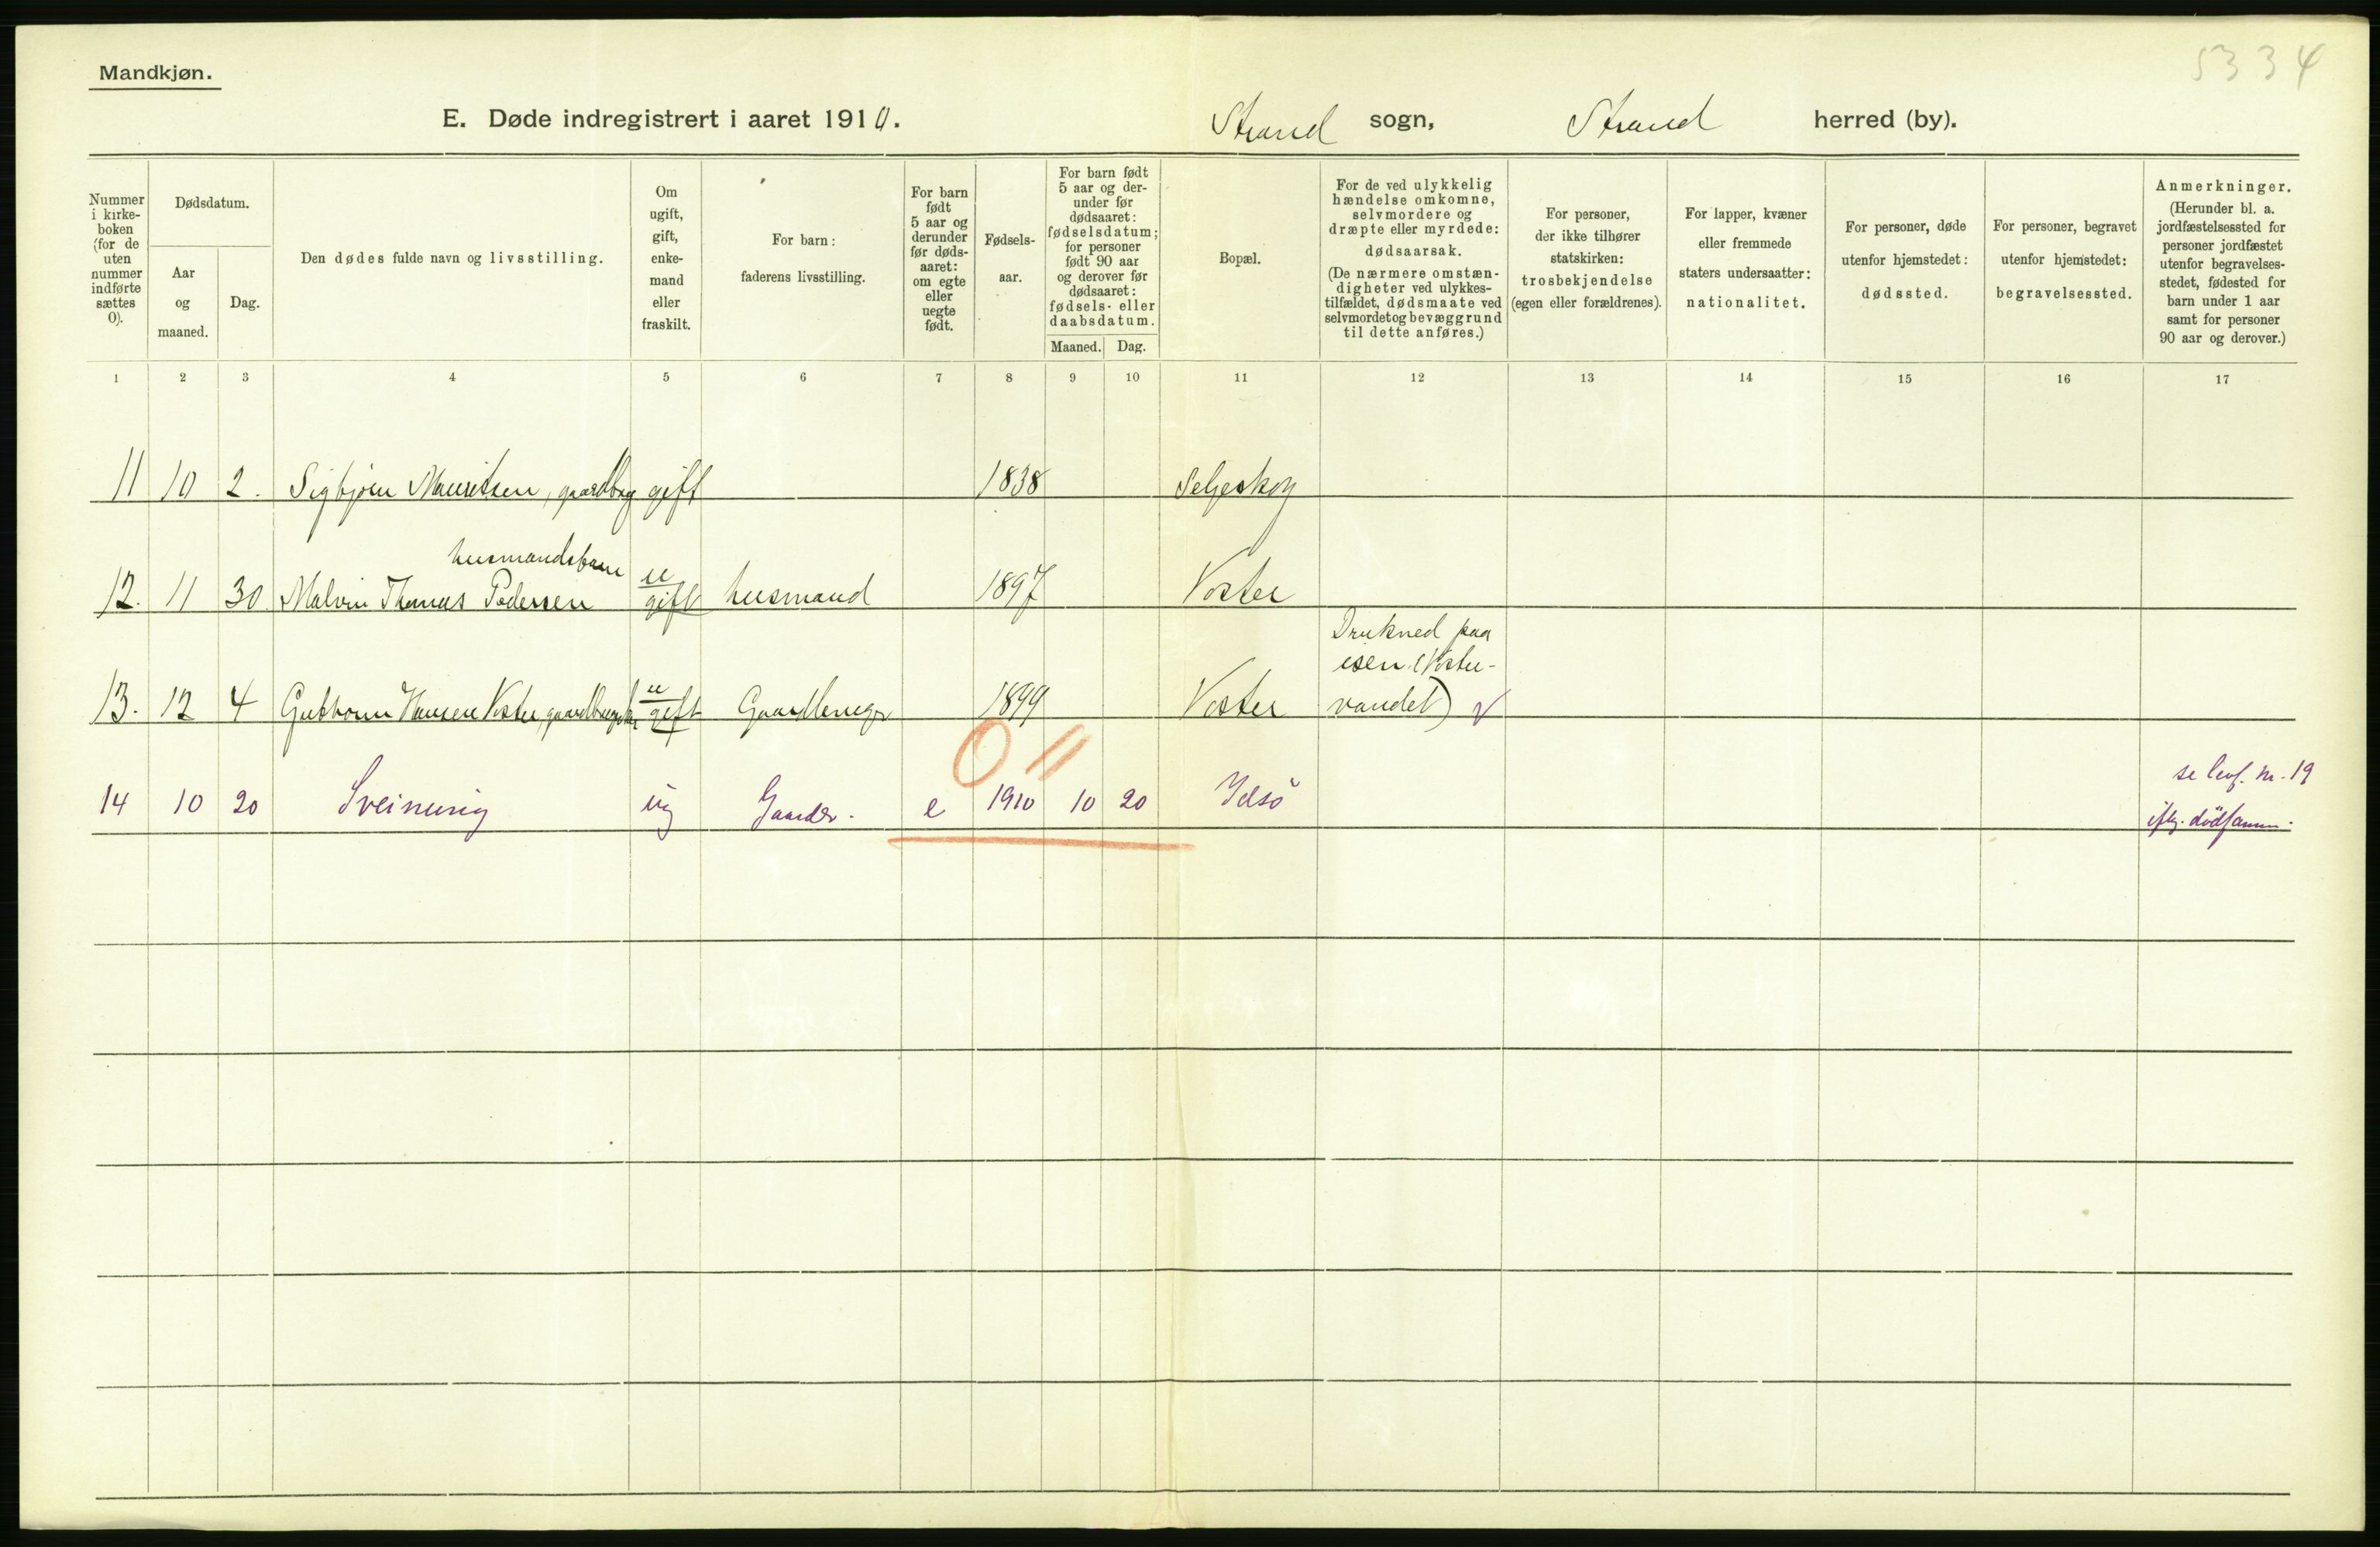 5334
Mandkjøn.
E. Døde indregistrert i aaret 1910. Strand sogn, Strand herred (by).
Nummer i kirke- boken (for de uten nummer indførte sættes 0).
Dødsdatum.
Aar og maaned.
Dag.
Den dødes fulde navn og livsstilling.
Om ugift, gift, enke- mand eller fraskilt.
For barn: faderens livsstilling.
For barn født 5 aar og derunder før døds- aaret: om egte eller uegte født.
Fødsels- aar.
For barn født 5 aar og der- under før dødsaaret: fødselsdatum; for personer født 90 aar og derover før dødsaaret: fødsels- eller daabsdatum.
Maaned. Dag.
Bopæl.
For de ved ulykkelig hændelse omkomne, selvmordere og dræpte eller myrdede: dødsaarsak. (De nærmere omstæn- digheter ved ulykkes- tilfældet, dødsmaate ved selvmordet og bevæggrund til dette anføres.)
For personer, der ikke tilhører statskirken: trosbekjendelse (egen eller forældrenes).
For lapper, kvæner eller fremmede staters undersaatter: nationalitet.
For personer, døde utenfor hjemstedet: dødssted.
For personer, begravet utenfor hjemstedet: begravelsessted.
Anmerkninger. (Herunder bl. a. jordfæstelsessted for personer jordfæstet utenfor begravelses- stedet, fødested for barn under 1 aar samt for personer 90 aar og derover.)
1 2 3 4 5 6 7 8 9 10 11 12 13 14 15 16 17
11 10 2. Sigbjørn Mauritsen, gaardbrg gift 1838 Seljeskog
husmandsbarn
12. 11 30 Malvin Thomas Pedersen u gift husmand 1897 Voster
Drukned paa
isen (Voster-
13. 12 4 Guthorm Hansen Voster, u gift Gaardbruger 1899 Voster vandet) v
0 11
se levf. nr. 19
14 10 20 Sveinung ug Gaardbr. e 1910 10 20 Idsö
iflg. dödsanm.